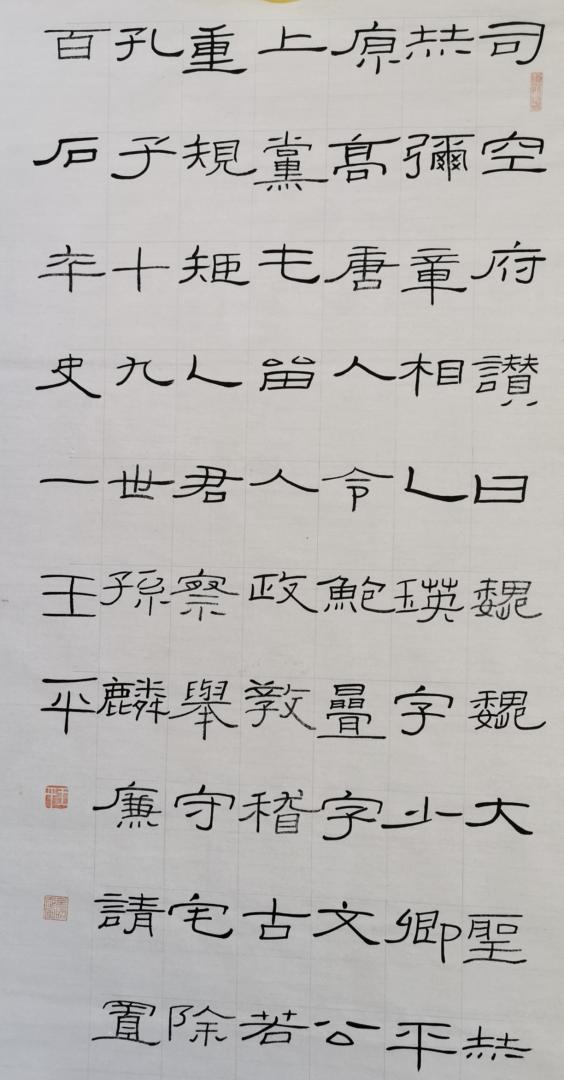 司空府讚曰魏魏大聖赫
赫彌章相乙瑛字少卿平
原高唐人令鮑疊字文公
上黨屯留人政教稽古若
重規矩乙君察舉守宅除
孔子十九世孫麟廉請置
百石卒史一王平